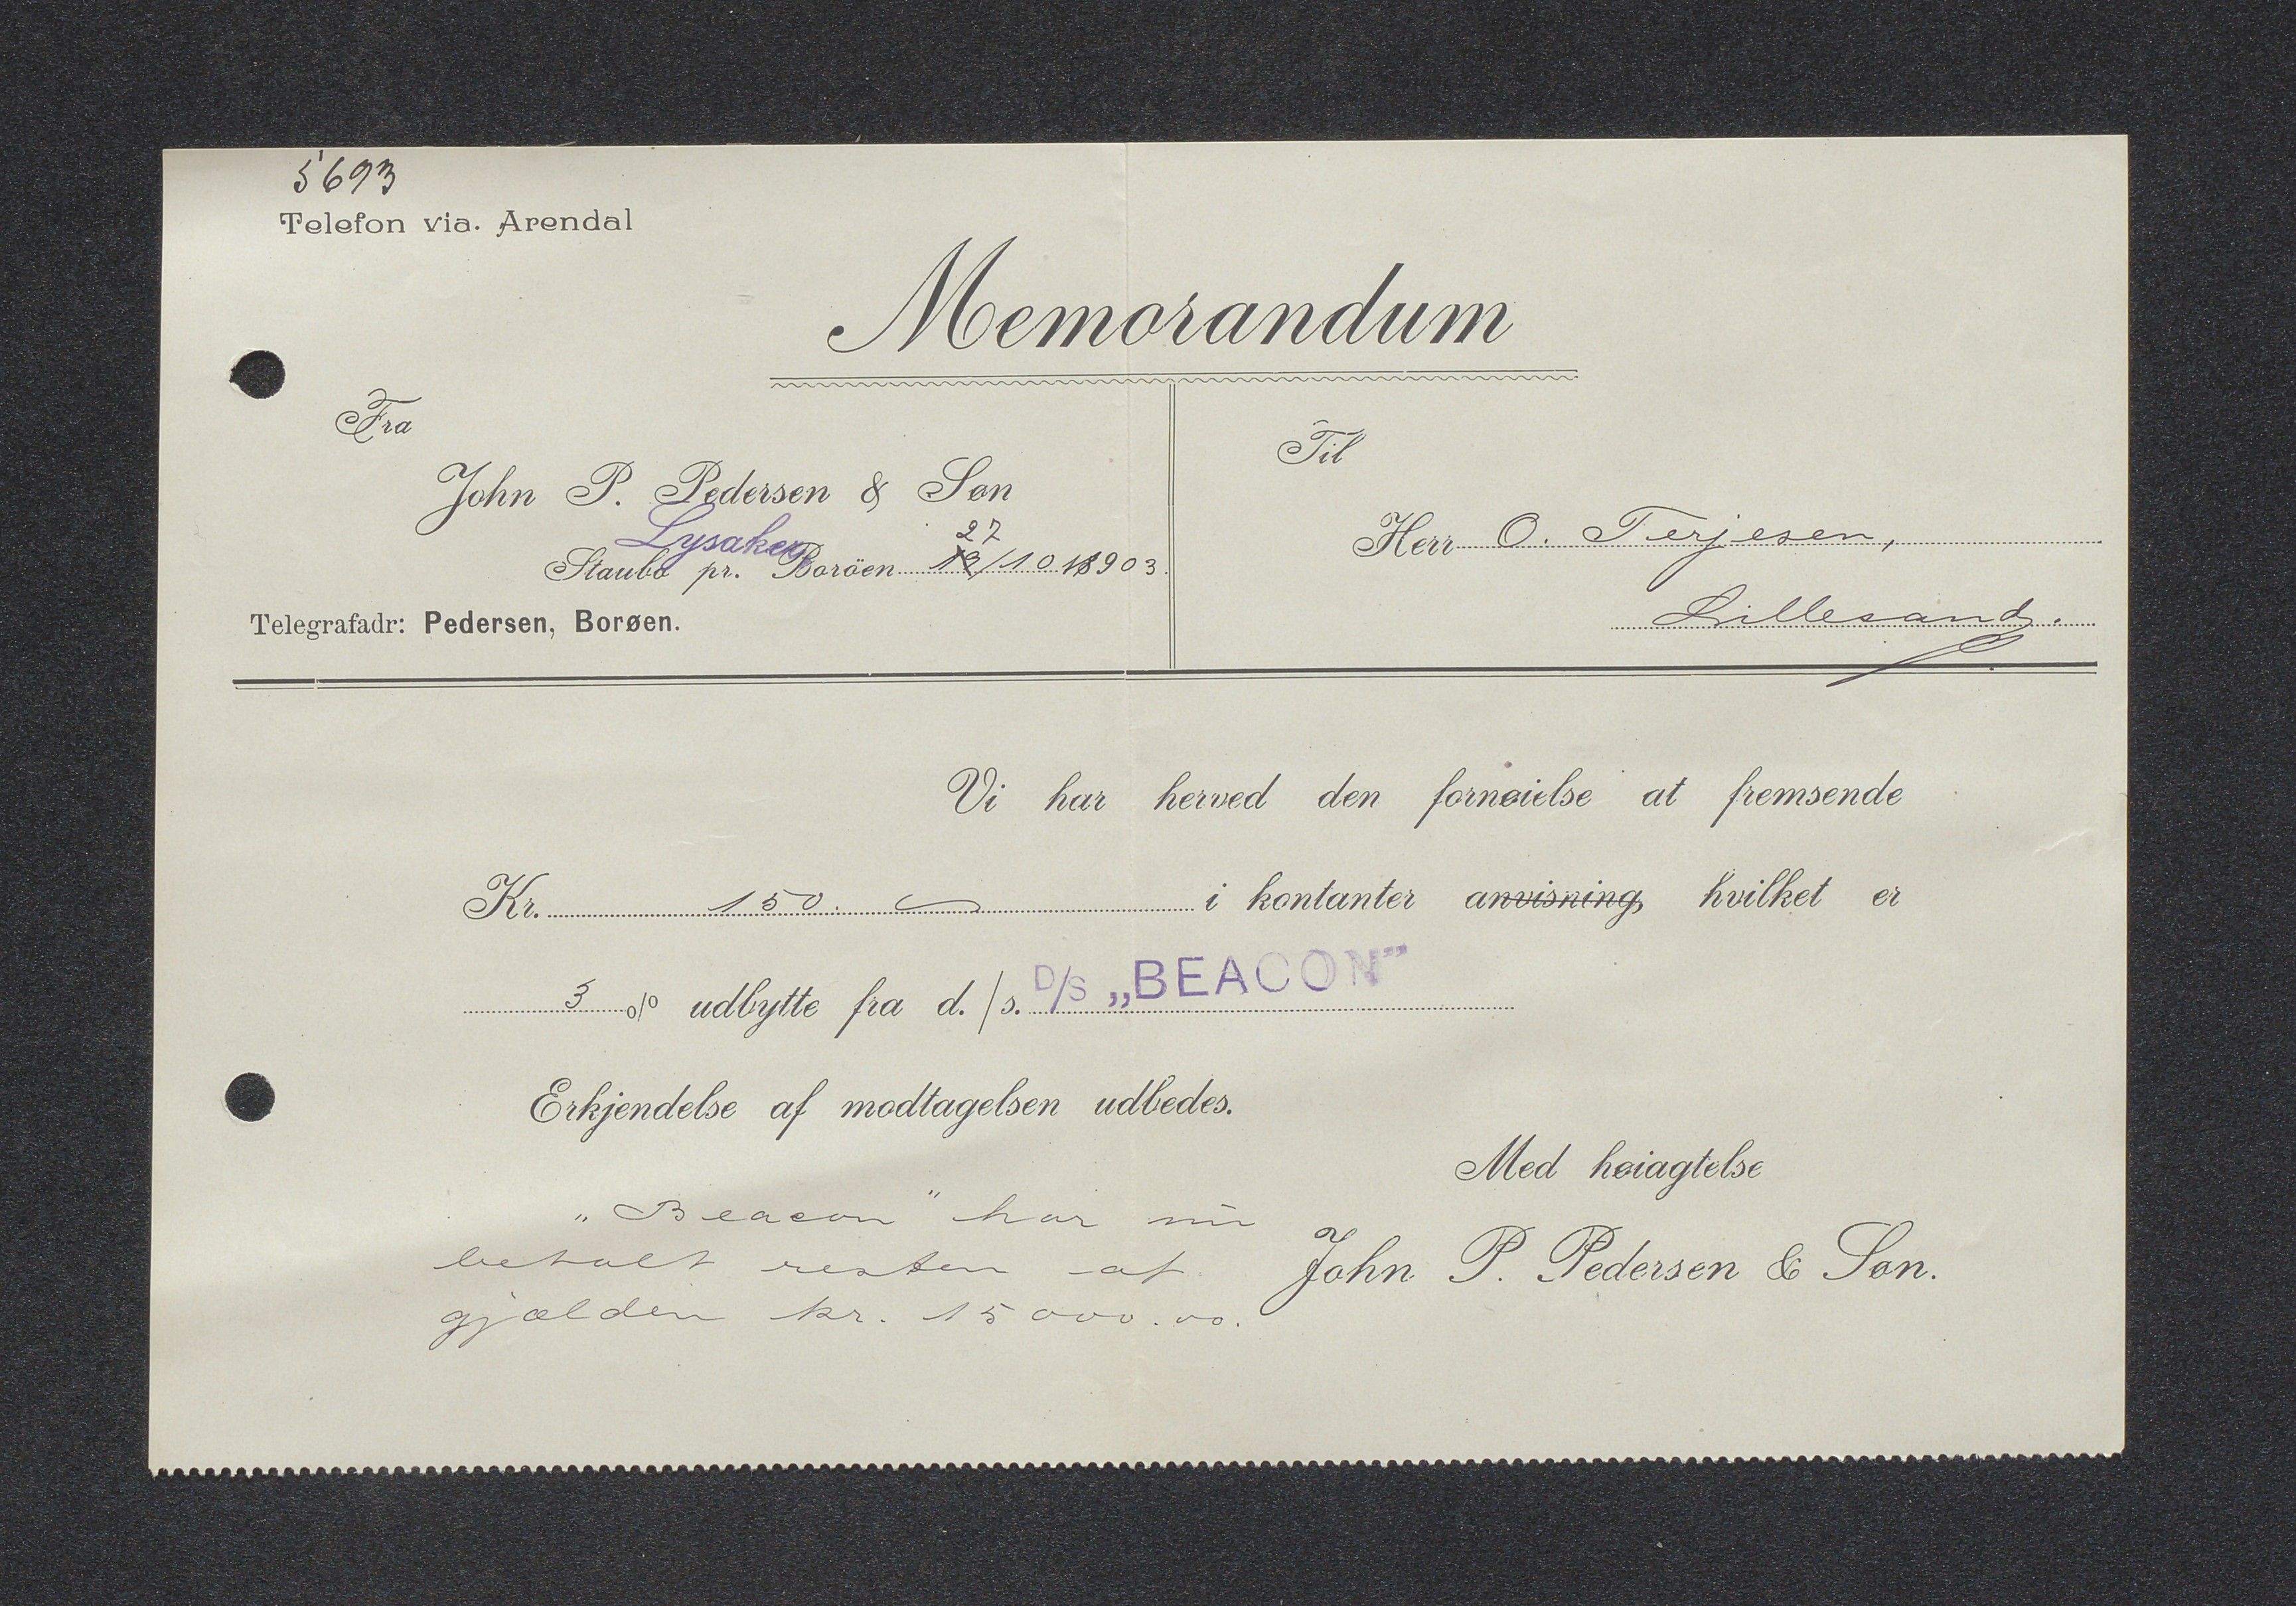 5693
Telefon via. Arendal
Memorandum
Fra
John P. Pedersen & Søn
Lysaker
27
Staubø pr. Borøen /10 1903.
Telegrafadr: Pedersen, Borøen.
Til
Herr O. Terjesen,
Lillesand.
Vi har herved den fornøielse at fremsende
Kr. 150. i kontanter anvisning, hvilket er
3 o/o udbytte fra d./s. D/S „BEACON”
Erkjendelse af modtagelsen udbedes.
Med høiagtelse
„Beacon” har nu
betalt resten af
gjælden kr. 15000.00.
John P. Pedersen & Søn.